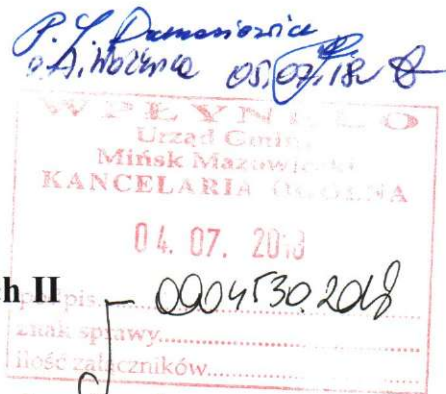 05.07.18r
WPŁYNĘŁO
Urząd Gminy
Mińsk Mazowiecki
KANCELARIA OGÓLNA
04. 07. 2018
ch II
podpis......... 0004530.2018
znak sprawy.........
ilość załączników.........